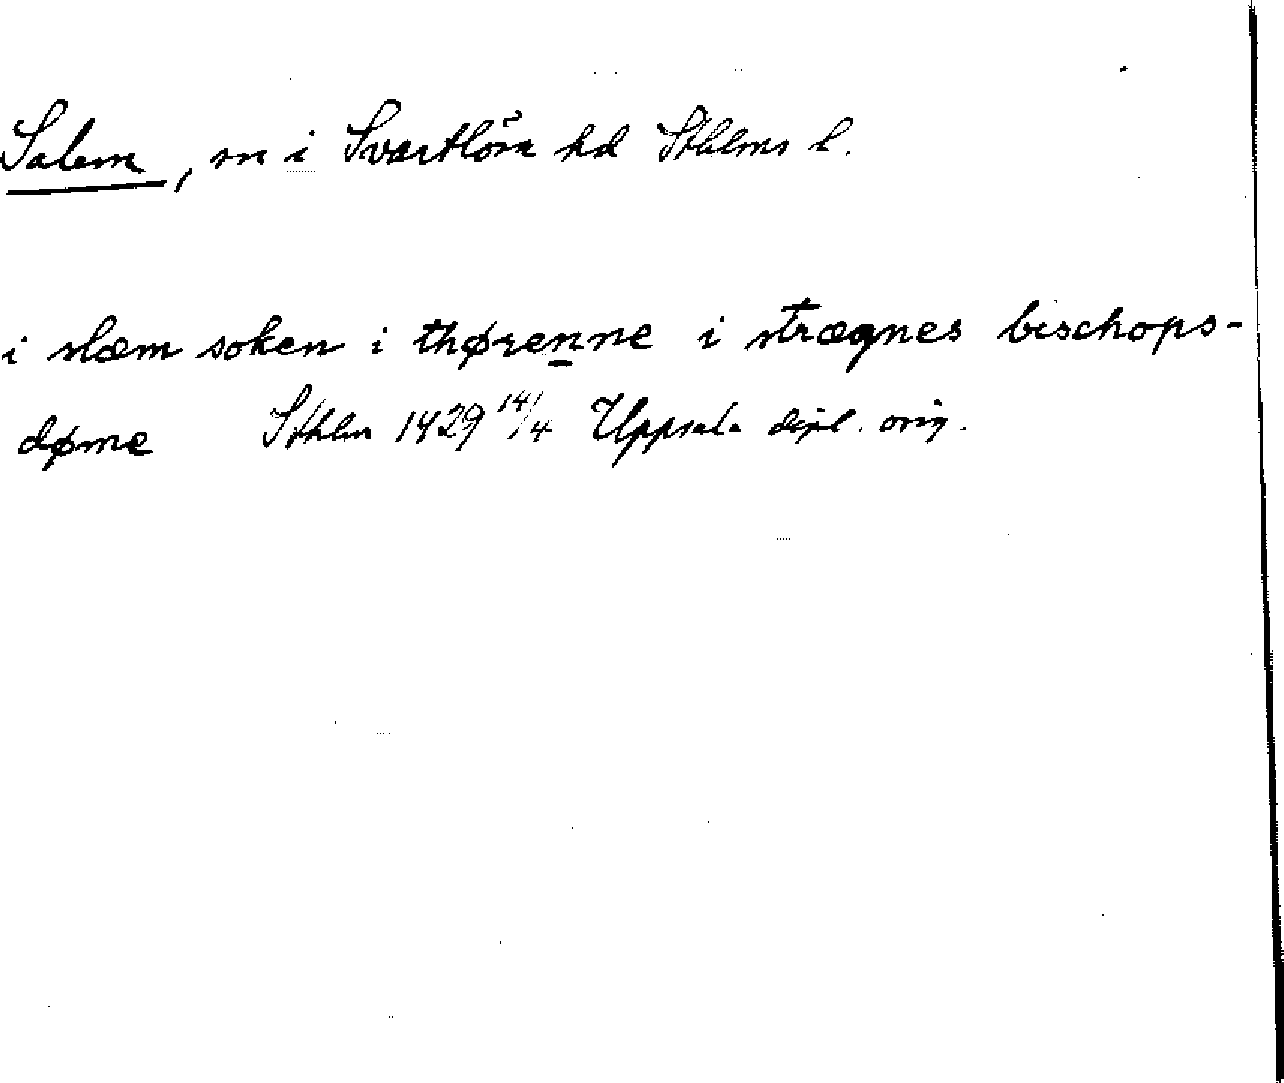 Salem, sn i Svartlösa hd Sthlms l.
i slæm soken i thørenne i strægnes bischops-
døme Sthlm 1429 14/4 Uppsala dipl. orig.